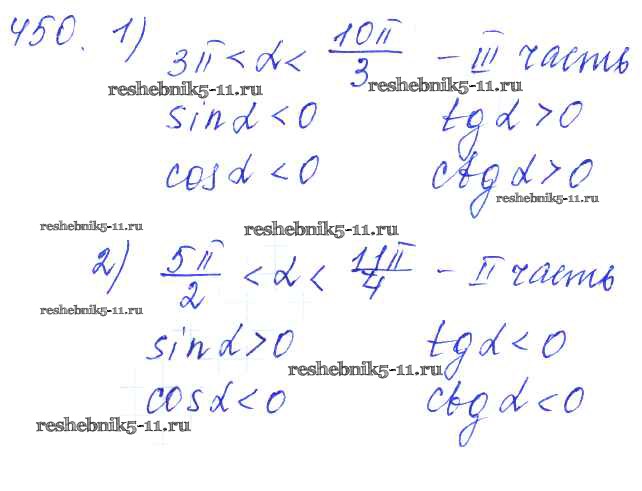 450. 1) 3π < α < 10π/3 – III часть
reshebnik5-11.ru reshebnik5-11.ru
sin α < 0 tg α > 0
cos α < 0 ctg α > 0
reshebnik5-11.ru
reshebnik5-11.ru reshebnik5-11.ru
2) 5π/2 < α < 11π/4 – II часть
reshebnik5-11.ru
sin α > 0 tg α < 0
reshebnik5-11.ru
cos α < 0 ctg α < 0
reshebnik5-11.ru